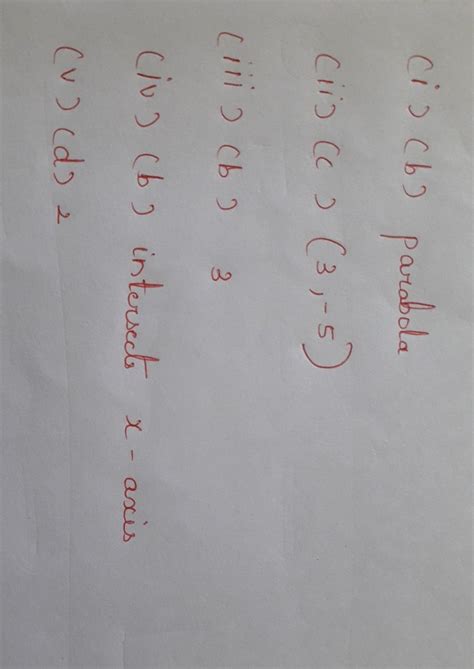 (i) (b) parabola
(ii) (c) (3,-5)
(iii) (b) 3
(iv) (b) intersects x-axis
(v) (d) 2